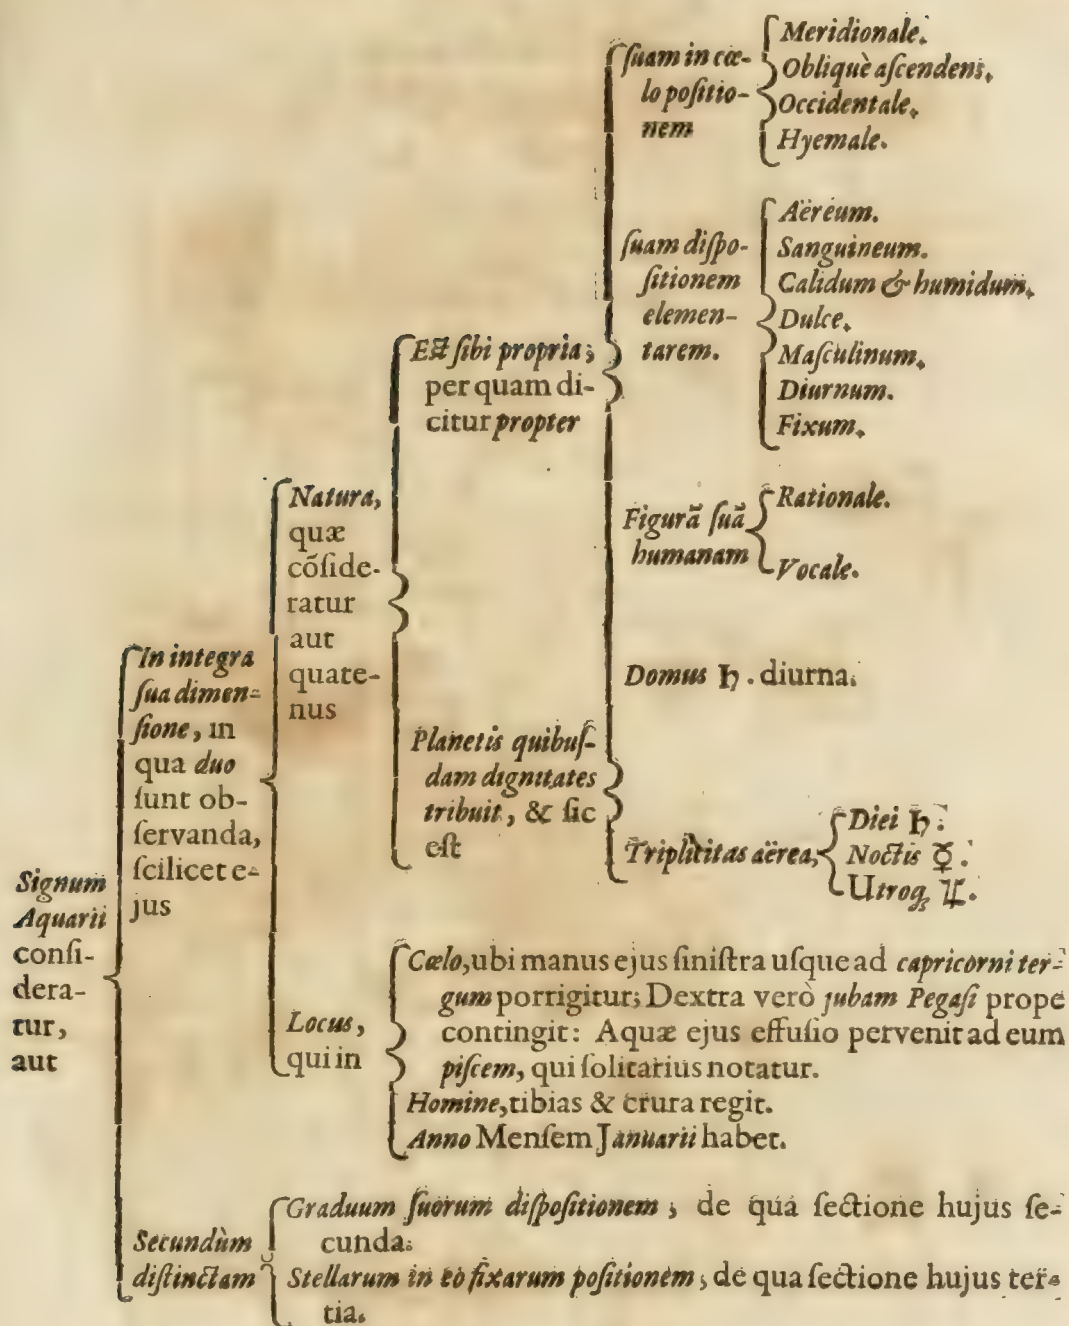 Signum
Aquarii
conſi-
dera-
tur,
aut
In integra
ſua dimen-
ſione, in
qua duo
ſunt ob-
ſervanda,
ſcilicet e-
jus
Natura,
quæ
cõſide-
ratur
aut
quate-
nus
Eſt ſibi propria;
per quam di-
citur propter
ſuam in cœ-
lo poſitio-
nem
Meridionale.
Obliquè aſcendens.
Occidentale.
Hyemale.
ſuam diſpo-
ſitionem
elemen-
tarem.
Aëreum.
Sanguineum.
Calidum & humidum.
Dulce.
Maſculinum.
Diurnum.
Fixum.
Figurã ſuã
humanam
Rationale.
Vocale.
Planetis quibuſ-
dam dignitates
tribuit, & ſic
eſt
Domus ♄. diurna.
Triplicitas aërea,
Diei ♄.
Noctis ☿.
Utroq; ♃.
Locus,
qui in
Cœlo, ubi manus ejus ſiniſtra uſque ad capricorni ter-
gum porrigitur; Dextra verò jubam Pegaſi prope
contingit: Aquæ ejus effuſio pervenit ad eum
piſcem, qui ſolitarius notatur.
Homine, tibias & crura regit.
Anno Menſem Januarii habet.
Secundùm
diſtinctam
Graduum ſuorum diſpoſitionem; de quâ ſectione hujus ſe-
cunda.
Stellarum in eo fixarum poſitionem; de qua ſectione hujus ter-
tia.